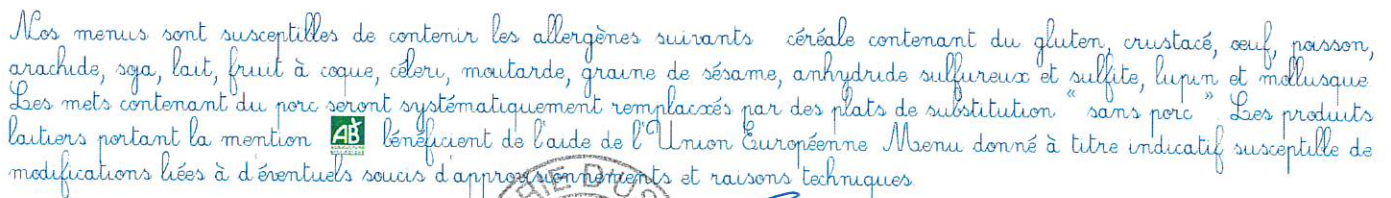 Nos menus sont susceptilles de contenir les allergènes suivants céréale contenant du gluten, crustacé, oeuf, poisson,
arachide, soja, lait, fruit à coque, céleri, moutarde, graine de sésame, anhydride sulfureux et sulfite, lupin et mollusque
Les mets contenant du porc seront systématiquement remplacés par des plats de substitution " sans porc " Les produits
laitiers portant la mention AB bénéficient de l'aide de l'Union Européenne Menu donné à titre indicatif susceptille de
modifications liées à d'éventuels soucis d'approvisionnements et raisons techniques